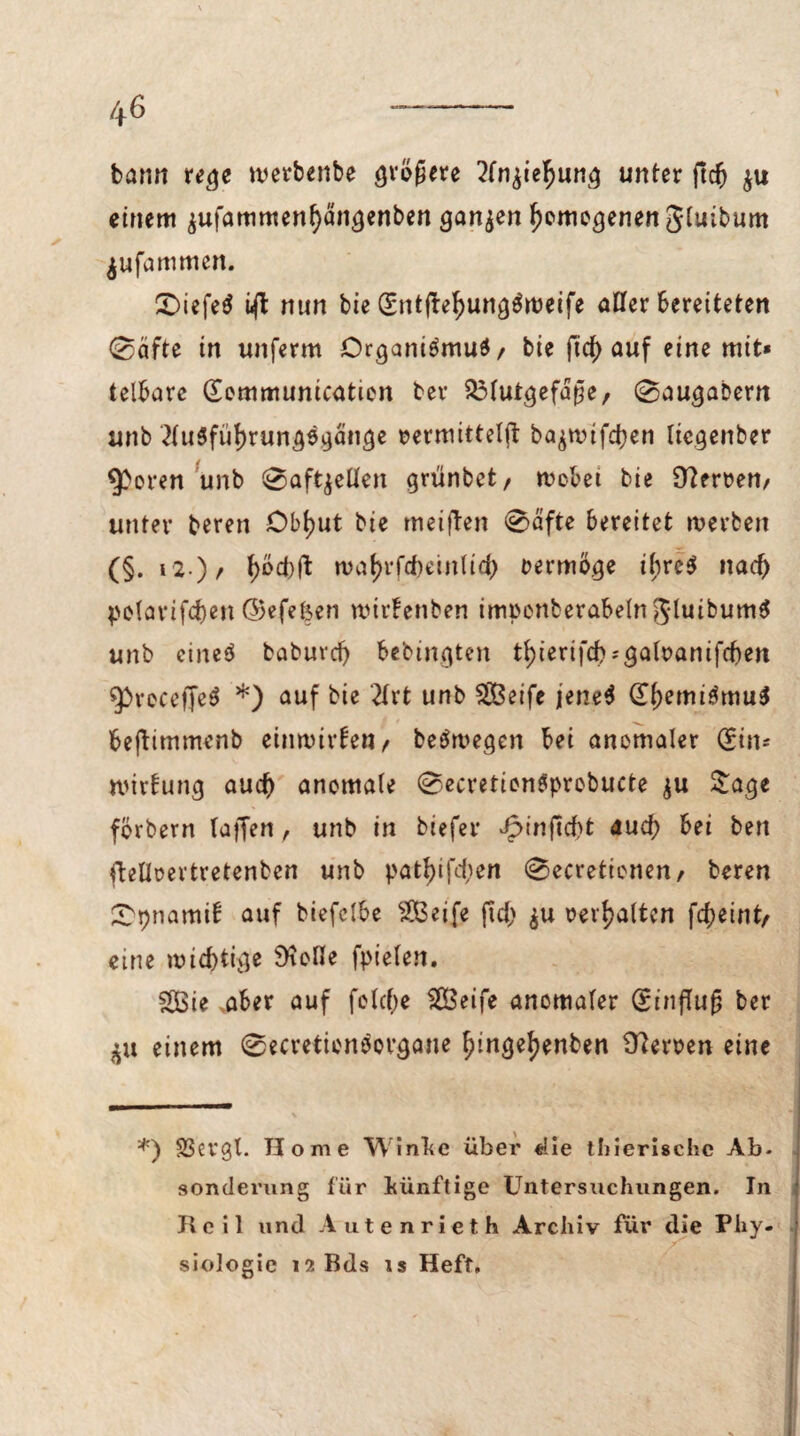 46
dann rege werdende größere Anziehung unter sich zu
einem zusammenhängenden ganzen homogenen Fluidum
zusammen.
Dieses ist nun die Entstehungsweise aller bereiteten
Säfte in unserm Organismus, die sich auf eine mit-
telbare Communication der Blutgefäße, Saugadern
und Ausführungsgänge vermittelst dazwischen liegender
Poren und Saftzellen gründet, wobei die Nerven,
unter deren Obhut die meisten Säfte bereitet werden
(§. 12.), höchst wahrscheinlich vermöge ihres nach
polarischen Gesetzen wirkenden imponderabeln Fluidums
und eines dadurch bedingten thierisch-galvanischen
Processes *) auf die Art und Weise jenes Chemismus
bestimmend einwirken, deswegen bei anomaler Ein-
wirkung auch anomale Secretionsproducte zu Tage
fördern lassen, und in dieser Hinsicht auch bei den
stellvertretenden und pathischen Secretionen, deren
Dynamik auf dieselbe Weise sich zu verhalten scheint,
eine wichtige Rolle spielen.
Wie aber auf solche Weise anomaler Einfluß der
zu einem Secretionsorgane hingehenden Nerven eine
*) Vergl. Home Winke über die thierische Ab-
sonderung für künftige Untersuchungen. In
Reil und Autenrieth Archiv für die Phy-
siologie 12 Bds 1s Heft.